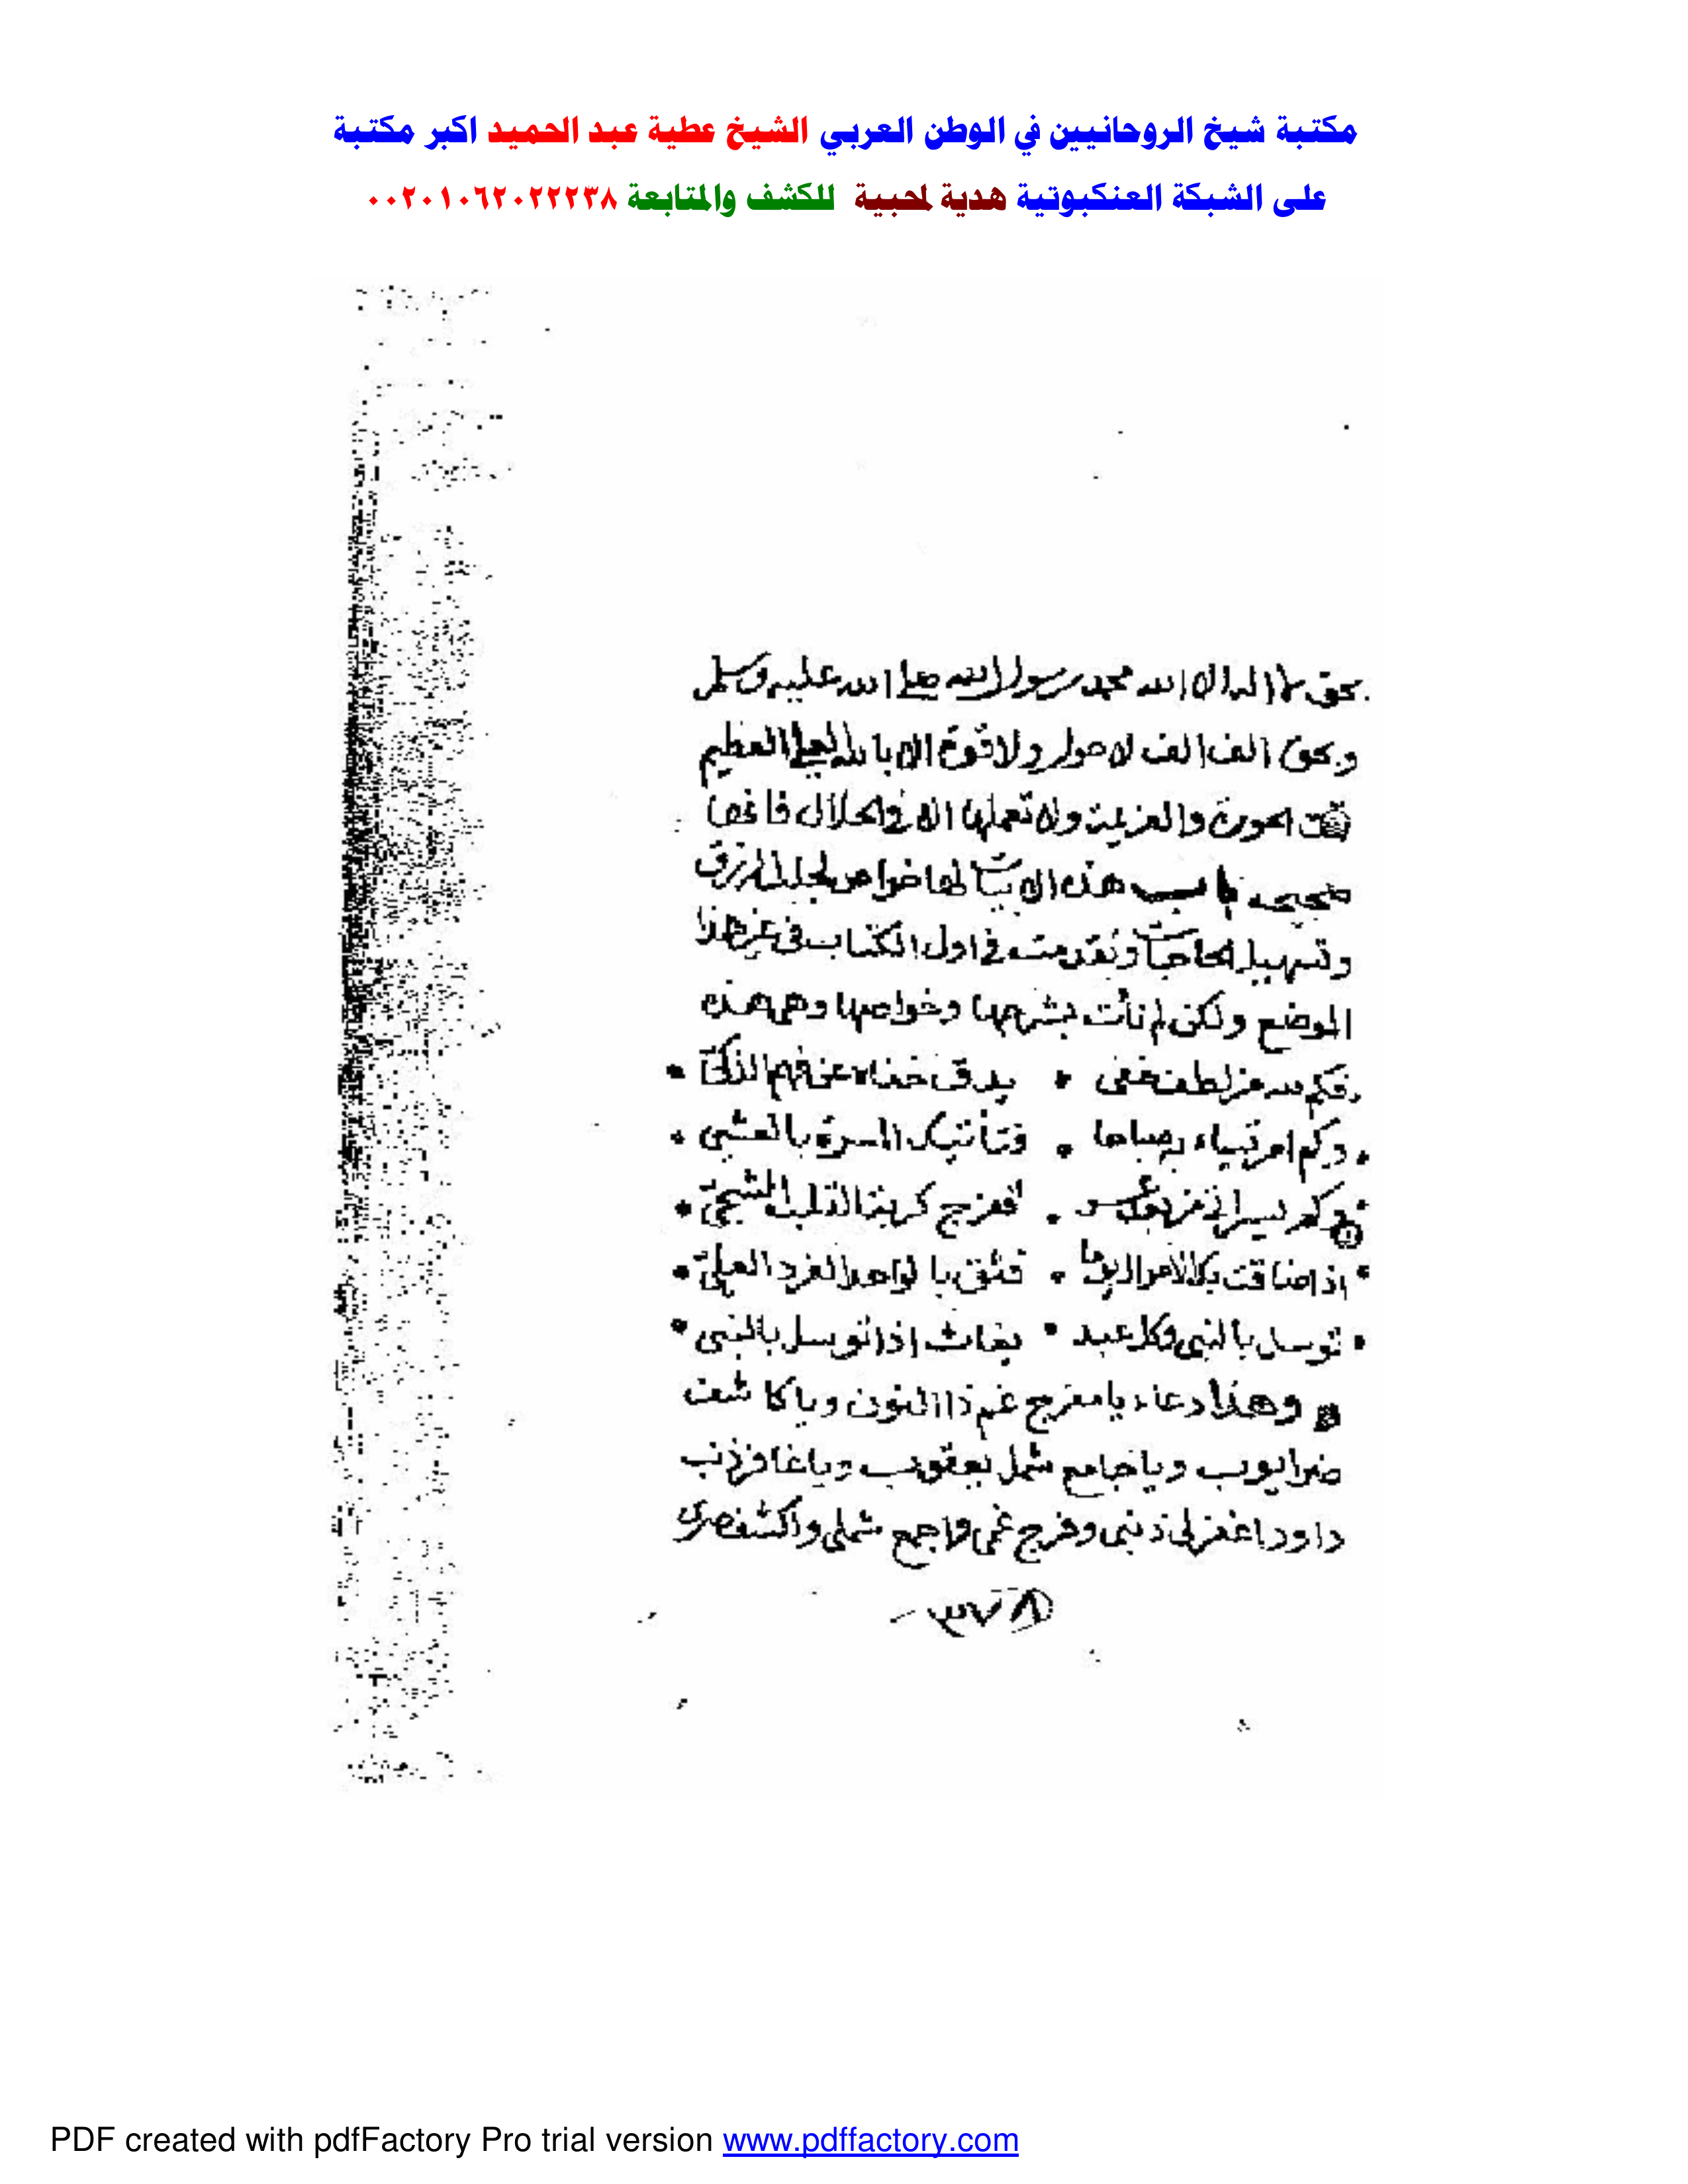 مكتبة شيخ الروحانيين في الوطن العربي الشيخ عطية عبد الحميد اكبر مكتبة
على الشبكة العنكبوتية هدية لمحبية للكشف والمتابعة ٠٠٢٠١٠٦٢٠٢٢٢٣٨
بحق لا اله الا الله محمد رسول الله صلى الله عليه وسلم
وبحق الف الف لا حول ولا قوة الا بالله العلي العظيم
تمت العودة والعزيمة ولا تعملها الا في الحلال فانها
صحيحه باب هذه الابيات لها خواص لجلب الرزق
وتسهيل الحاجات وتقدمت في اول الكتاب في غير هذا
الموضع ولكن لم نأت بشرحها وخواصها وهي هذه
وكم لله من لطف خفى • يدق خفاه عن فهم الذكيّ •
• وكم امر تساء به صباحا • فتأتيك المسرة بالعشى •
• وكم يسر اتى من بعد عسر • ففرج كربة القلب الشجيّ •
• اذا ضاقت بك الامور يوما • فثق بالواحد الفرد العليّ •
• توسل بالنبى وكل عبد • يغاث اذا توسل بالنبى •
وهذا دعاء يا مفرج غم ذا النون ويا كاشف
ضر ايوب ويا جامع شمل يعقوب ويا غافر ذنب
داود اغفر لى ذنبى وفرج غمى واجمع شملى واكشف ضرى
٣٧٨
PDF created with pdfFactory Pro trial version www.pdffactory.com